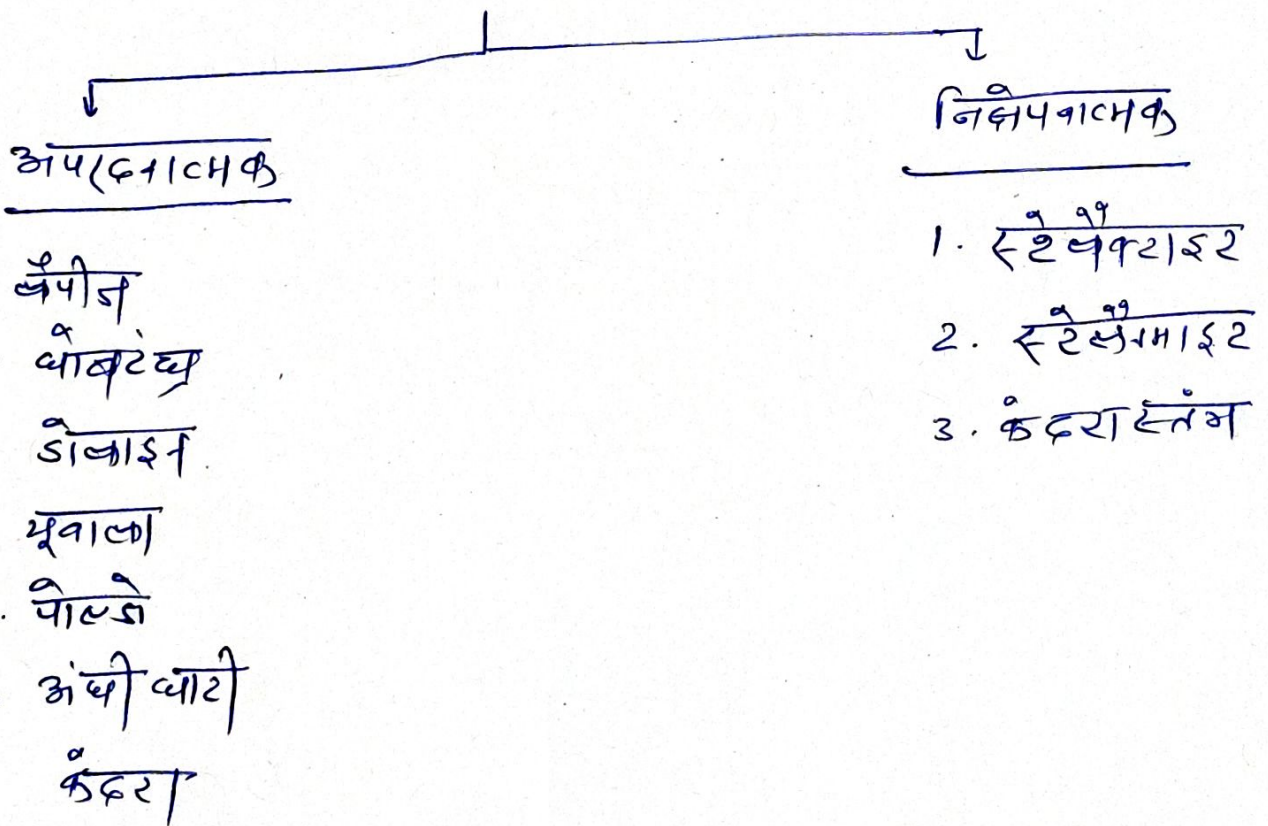 अपरदनात्मक
लैपीज
घोलरंध्र
डोलाइन
यूवाला
पोल्जे
अंधी घाटी
कंदरा
निक्षेपनात्मक
1. स्टेलैक्टाइट
2. स्टेलैग्माइट
3. कंदरा स्तंभ